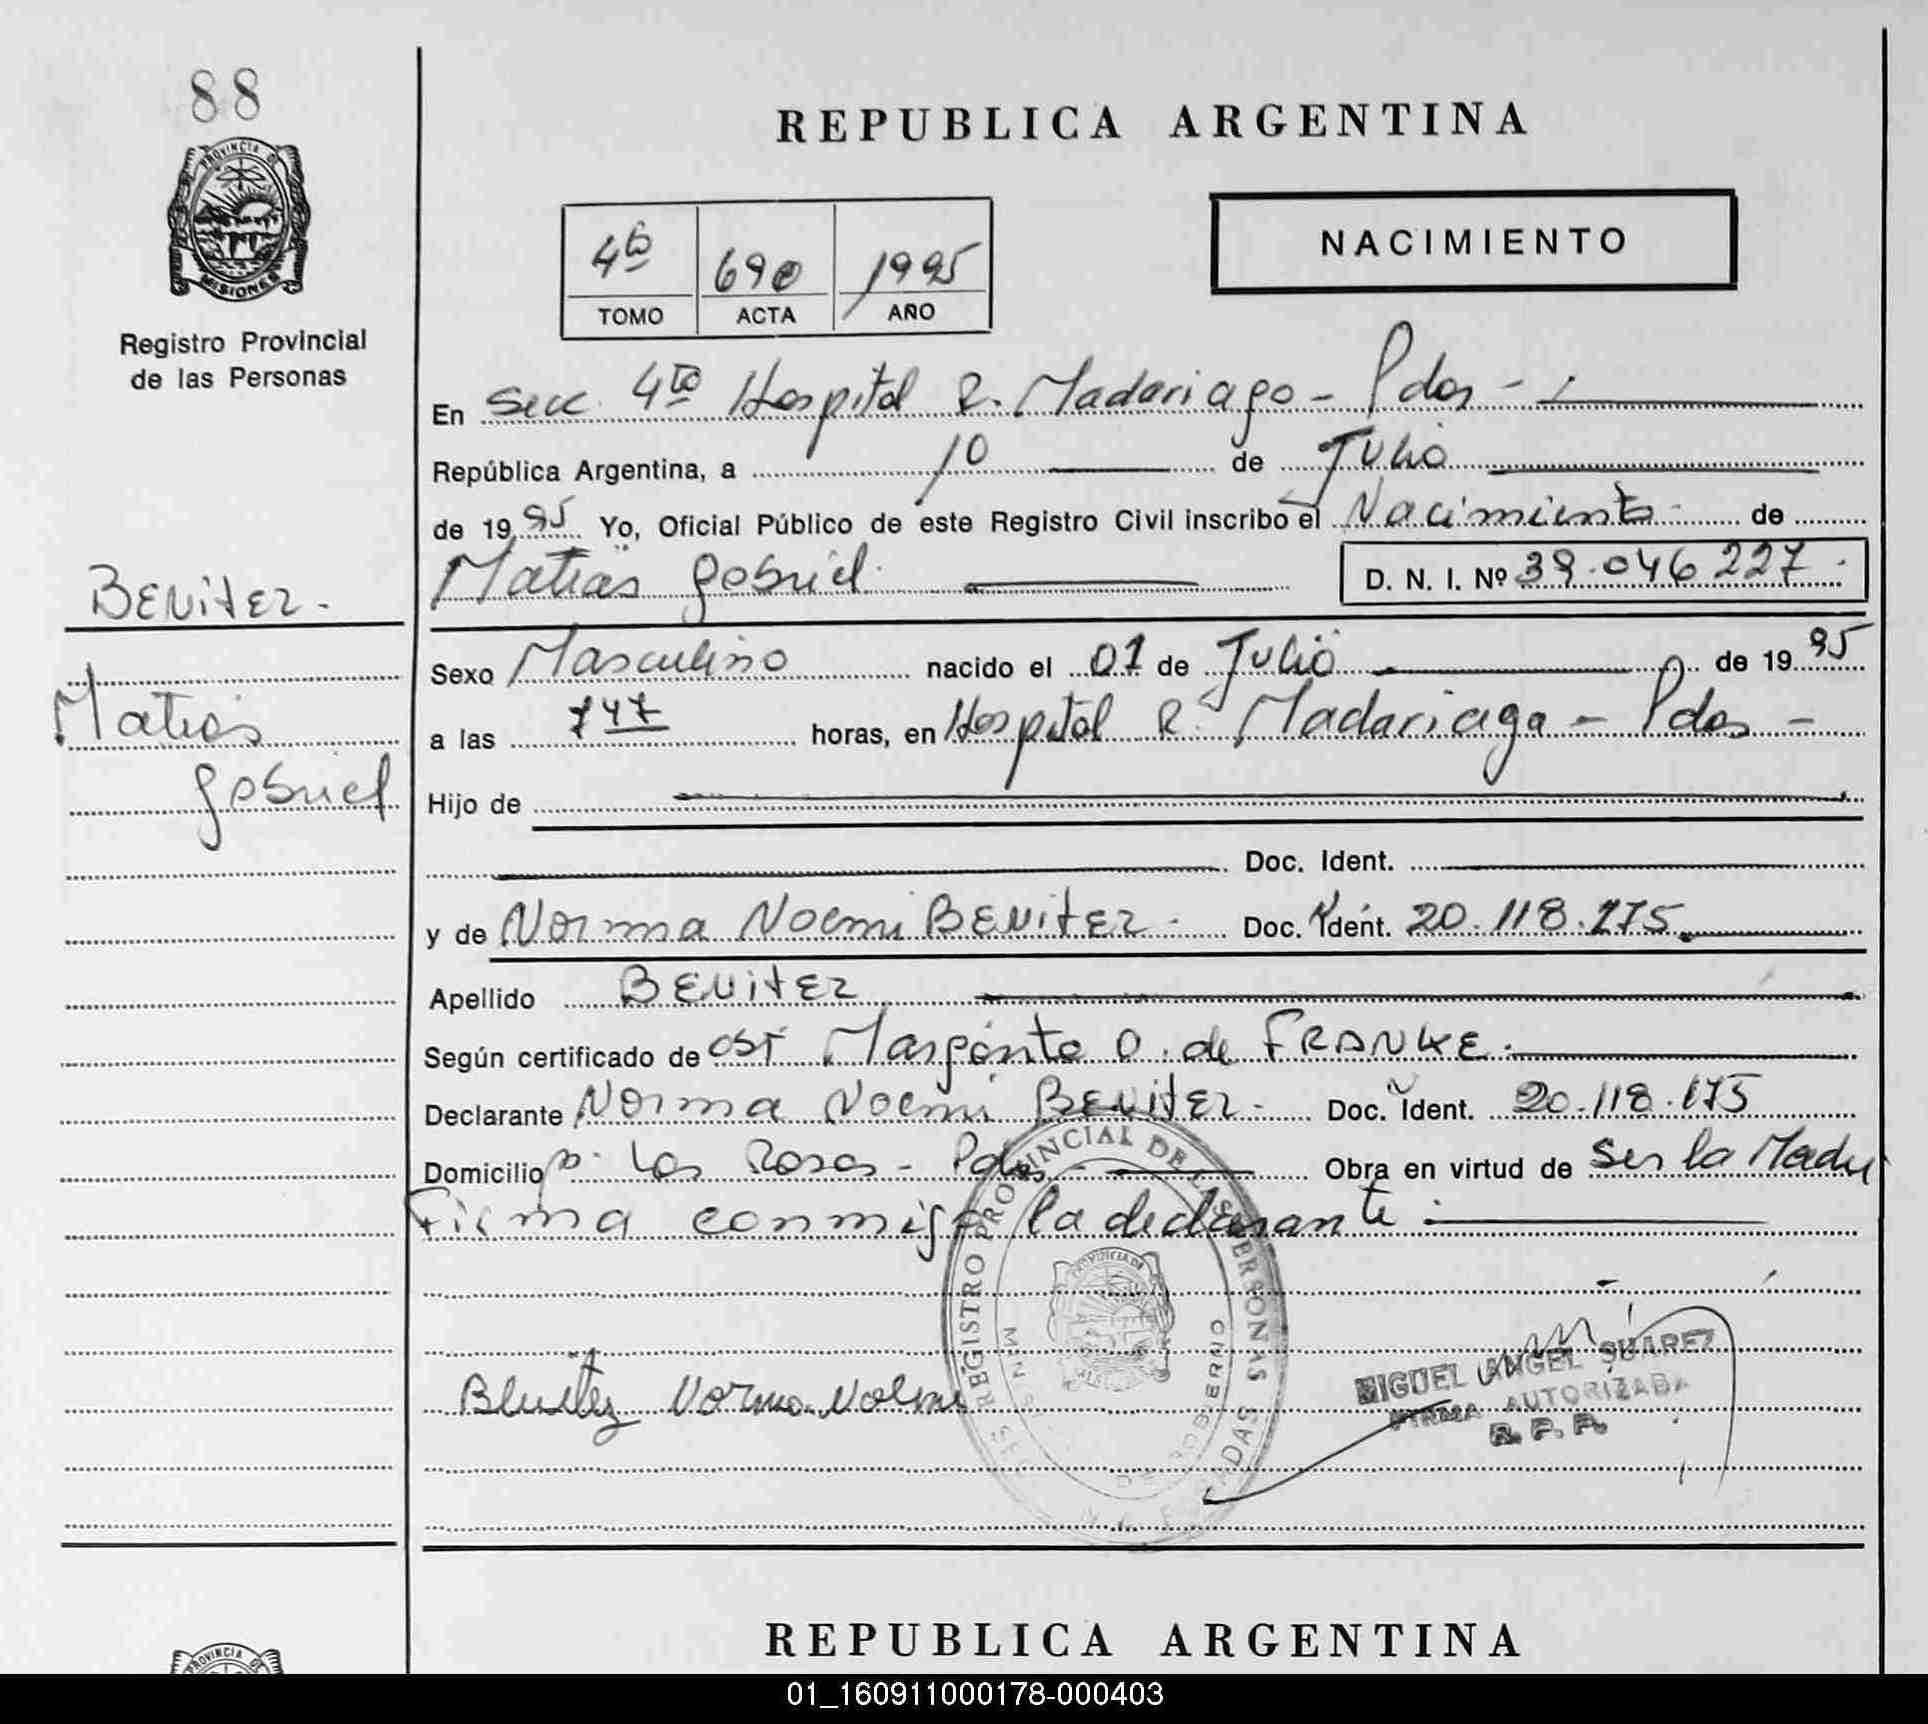 88
PROVINCIA DE
MISIONES
Registro Provincial
de las Personas
BENITEZ.
Matías
Gabriel
REPUBLICA ARGENTINA
4to 690 1995
TOMO ACTA AÑO
NACIMIENTO
En Secc. 4to Hospital R. Madariaga - Pdas -
República Argentina, a 10 de Julio
de 1995 Yo, Oficial Público de este Registro Civil inscribo el Nacimiento de
Matías Gabriel. D. N. I. Nº 39.046.227.
Sexo Masculino nacido el 01 de Julio de 1995
a las 747 horas, en Hospital R. Madariaga - Pdas -
Hijo de
Doc. Ident.
y de Norma Noemi BENITEZ. Doc. Ident. 20.118.175.
Apellido BENITEZ
Según certificado de Obst Margarita O. de FRANKE.
Declarante Norma Noemi BENITEZ. Doc. Ident. 20.118.175
Domicilio Las Rosas - Pdas. Obra en virtud de Ser la Madre
Firma conmigo la declarante
REGISTRO PROVINCIAL DE LAS PERSONAS
PROVINCIA DE
GOBIERNO
Benitez Norma Noemi
MIGUEL ANGEL SUAREZ
FIRMA AUTORIZADA
R. P. P.
REPUBLICA ARGENTINA
PROVINCIA DE
01_160911000178-000403